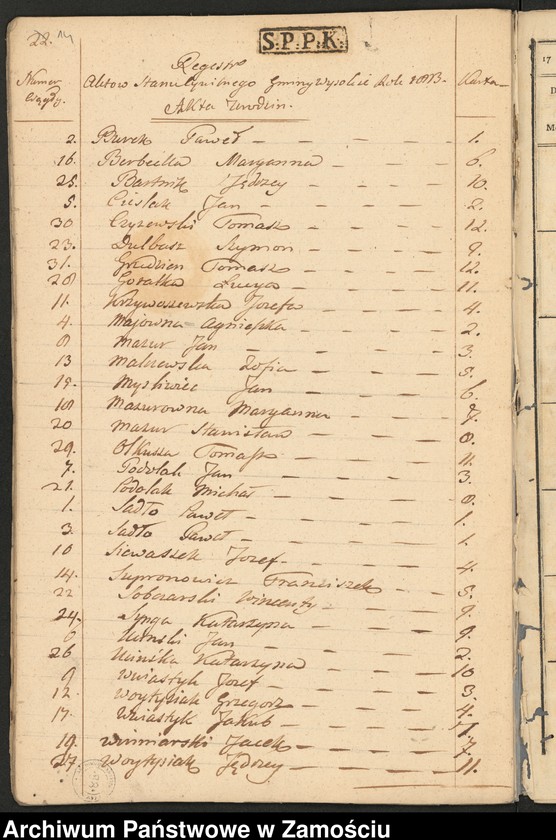 22. 14
S.P.P.K.
Regestr
Numer Ciągły.
Aktow Stanu Cywilnego Gminy Wysokie Role 1813. Karta
Akta Urodzin.
2. Burek Paweł 1.
16. Berbecka Maryanna 6.
25. Bartnik Jędrzey 10.
5. Cieslak Jan 2.
30 Czyzewski Tomasz 12.
23. Dulbasz Szymon 9.
31. Grudzien Tomasz 12.
28 Goralka Łucya 11.
11. Krzywaszewska Jozefa 4.
4. Majowna Agnieszka 2.
8 Mazur Jan 3.
13 Malszewska Zofia 5.
15. Myszliwiec Jan 6.
18 Mazurowna Maryanna 7.
20 Mazur Stanisław 8.
29. Olkusza Tomasz 11.
7. Podolak Jan 3.
21. Podolak Michał 8.
1. Sadło Paweł 1.
3. Sadło Paweł 1.
10 Siewaszek Jozef 4.
14. Szpronowicz Franciszek 5.
22 Sobczarski Wincenty 9.
24. Synga Katarzyna 9.
6 Jan 2.
26 Katarzyna 10
9 Wiiastyk Jozef 3.
12. Woytysiak Grzegorz 4.
17. Wiiastyk Jakub 7.
19. Winiarski Jacek 7.
27. Woytysiak Jędrzey 11.
17
D
M
Archiwum Państwowe w Zamościu